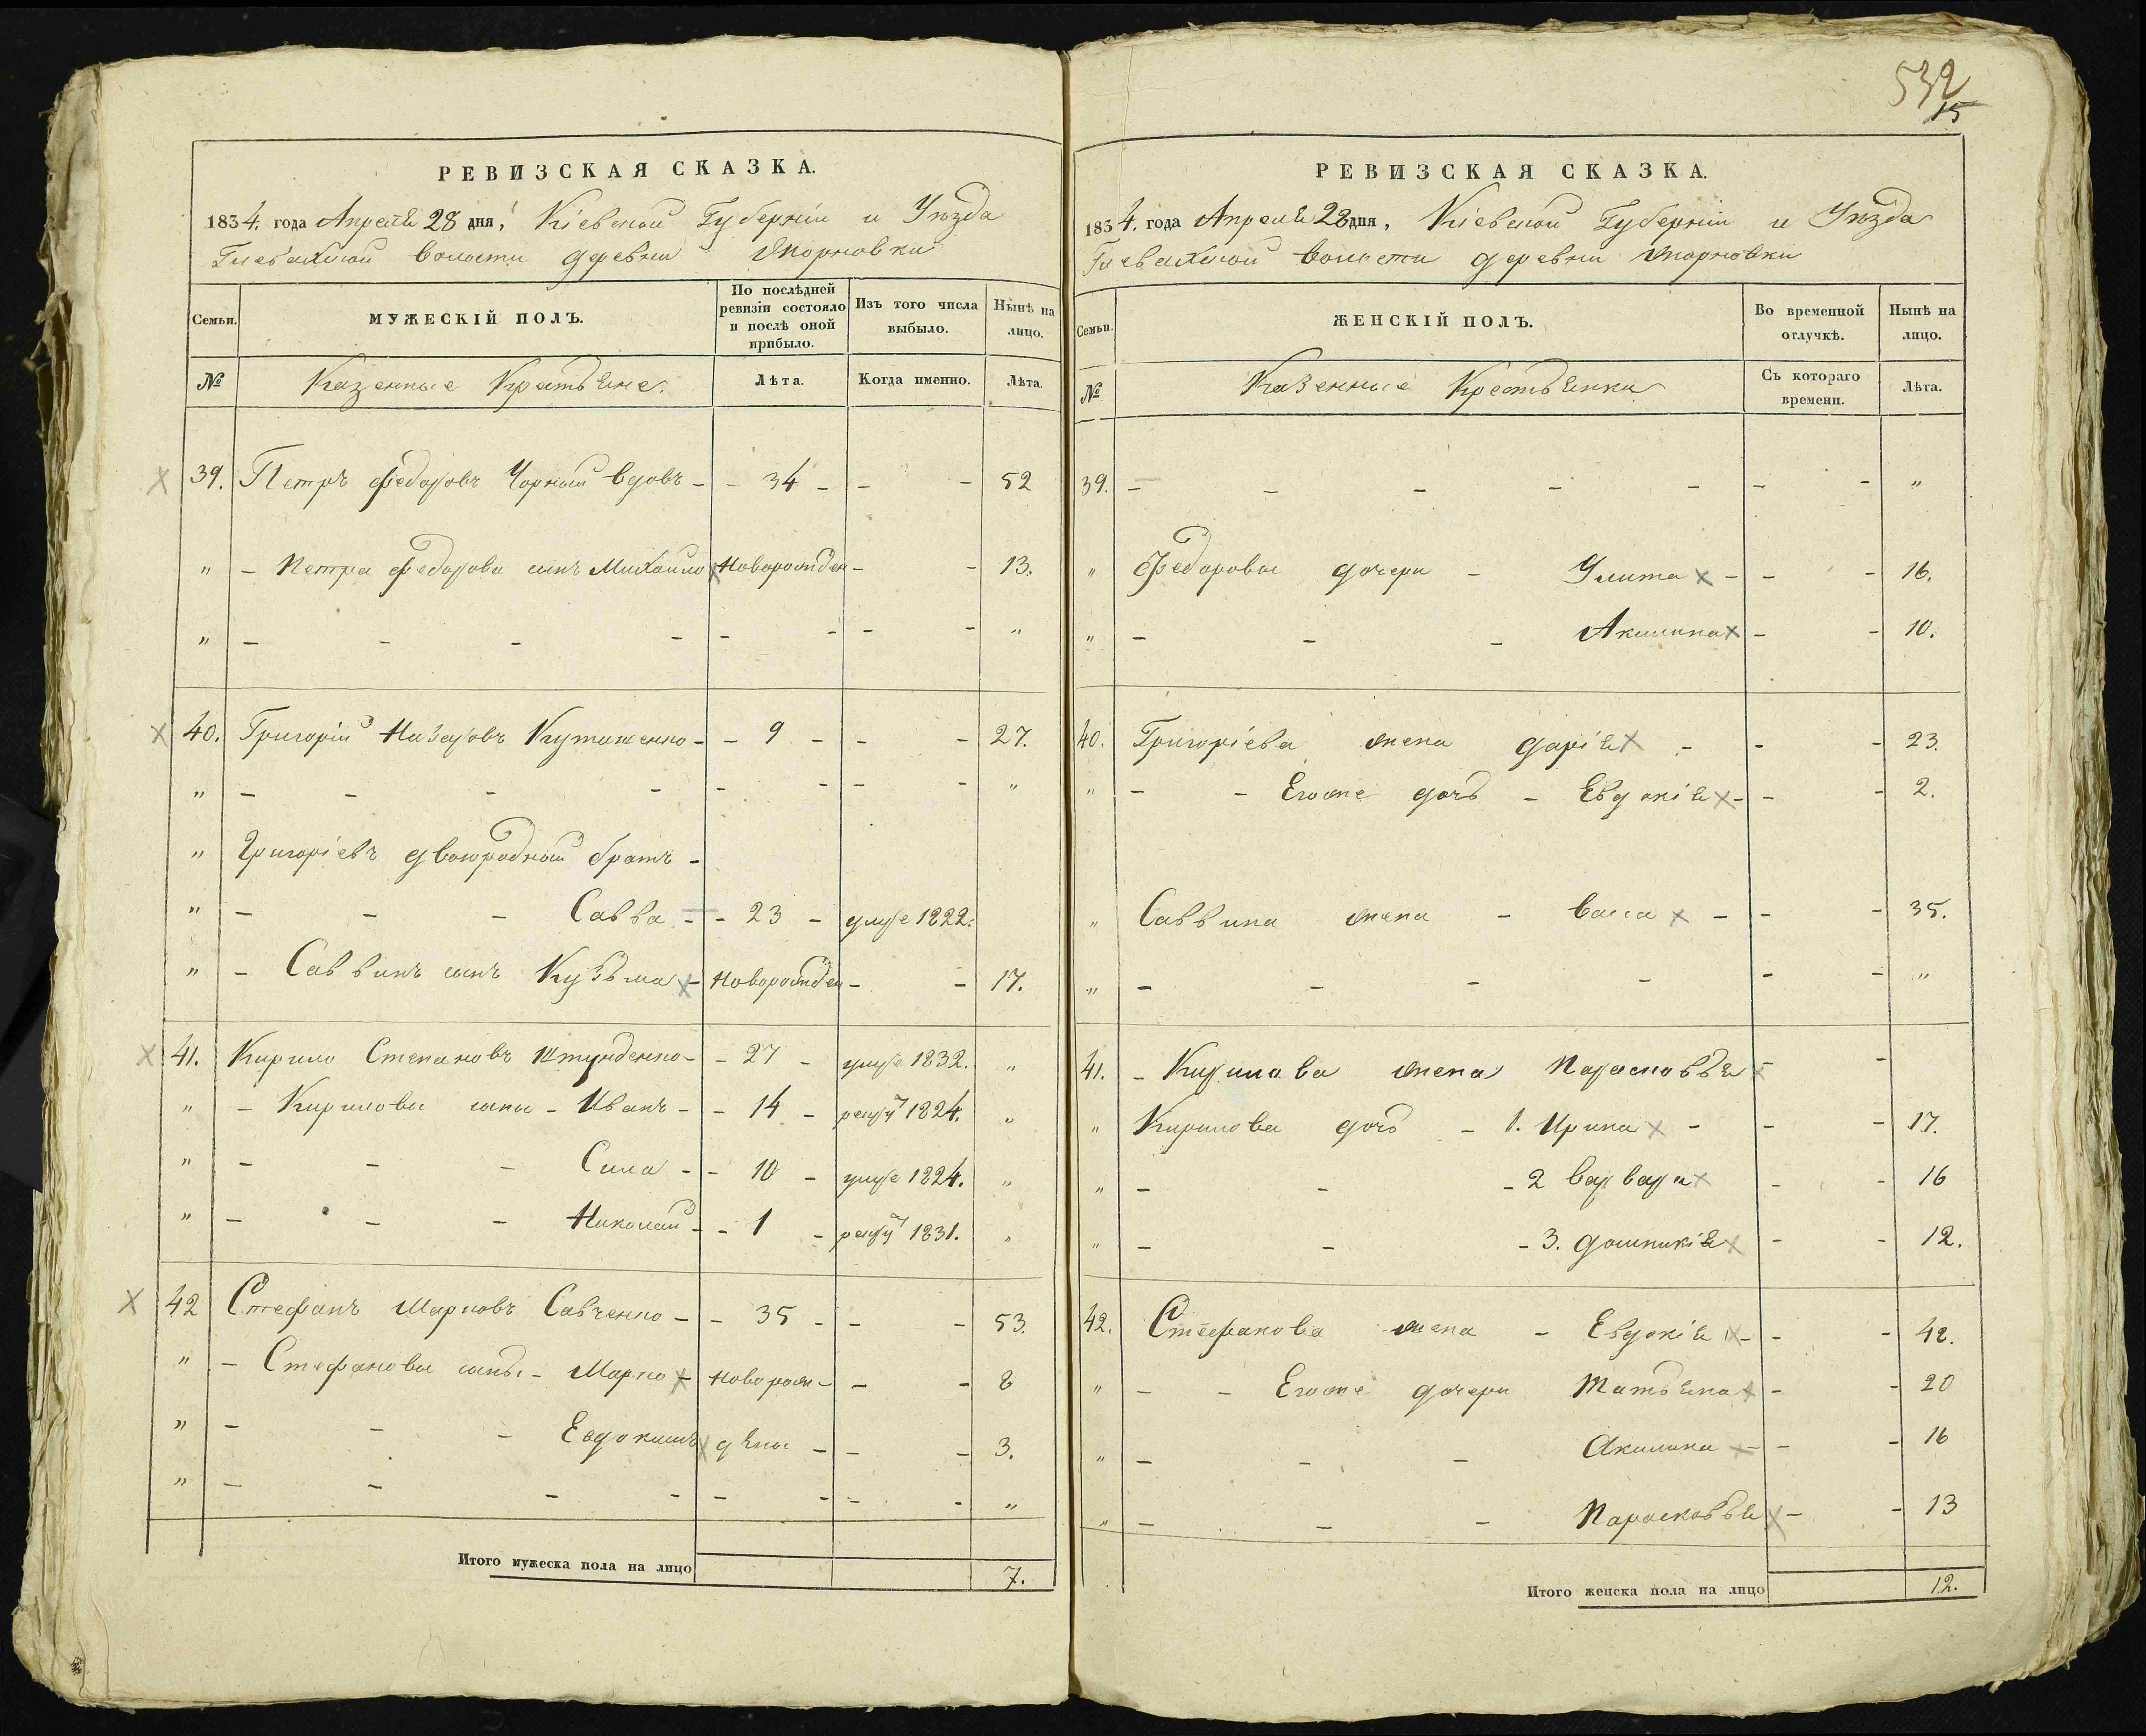 532
15
РЕВИЗСКАЯ СКАЗКА.
1834. года Апреля 28 дня, Кіевской Губерніи и Уѣзда
Глевахской волости деревни
Семьи.
МУЖЕСКІЙ ПОЛЪ.
По послѣдней ревизіи состояло и послѣ оной прибыло.
Изъ того числа выбыло.
Нынѣ на лицо.
№
Казенные Крестьяне.
Лѣта.
Когда именно.
Лѣта.
39. Петръ Федоровъ Чорный вдовъ - - 34 - - - 52
" - Петра Федорова сынъ Михайло х Новорожден - - 13.
" - - - - - - - - "
40. Григорій Назаровъ - - 9 - - - 27.
" - - - - - - - - "
" Григоріевъ двоюродный братъ -
" - - - Савва - - 23 - умре 1822.
" - Саввинъ сынъ Кузьма х - Новорожден - - 17.
41. Кирило Степановъ - - 27 - умре 1832. "
" - Кириловы сыны - Иванъ - - 14 - рекру 1824. "
" - - - Сила - - 10 - умре 1824. "
" - - - Николай - - 1 - рекру 1831. "
42 Стефанъ Марковъ Савченко - - 35 - - - 53.
" - Стефановы сыны - Марко х - Новорож - - - 8
" - - - Евдокимъ х дены - - - 3.
" - - - - - - - - "
Итого мужеска пола на лицо 7.
РЕВИЗСКАЯ СКАЗКА.
1834. года Апреля 28 дня, Кіевской Губерніи и Уѣзда
Глевахской волости деревни
Семьи.
ЖЕНСКІЙ ПОЛЪ.
Во временной отлучкѣ.
Нынѣ на лицо.
№
Казенные Крестьянки
Съ котораго времени.
Лѣта.
39. - - - - - - - "
" Федоровы дочери - Улита х - - - 16.
" - - - Акилина х - - 10.
40. Григоріева жена Дарія х - - - 23.
" - - Егоже дочь - Евдокія х - - - 2.
" Саввина жена - Васса х - - - 35.
" - - - - - - "
41. - Кирилова жена Парасковья х - -
" Кирилова дочь - 1. Ирина х - - - 17.
" - - - 2 Варвара х - - 16
" - - - 3. Домникія х - - 12.
42. Стефанова жена - Евдокія х - - - 42.
" - - Егоже дочери Татьяна х - - 20
" - - - Акилина х - - - 16
" - - - Парасковья х - - 13
Итого женска пола на лицо 12.